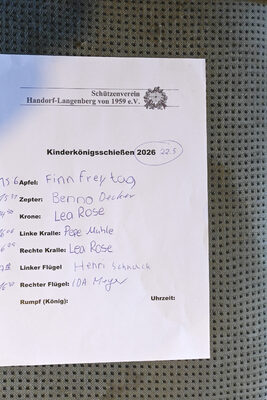 Schützenverein
Handorf-Langenberg von 1959 e.V.
Kinderkönigsschießen 2026 22.5
Apfel: Finn Freytag
Zepter: Benno Decker
Krone: Lea Rose
Linke Kralle: Pepe Mühle
Rechte Kralle: Lea Rose
Linker Flügel Henri
Rechter Flügel: IDA Meyer
Rumpf (König): Uhrzeit: